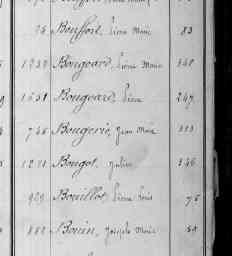 76 Bouffort, Pierre Marie 83
Bougeard, Pierre Marie
1651 Bougeard, Pierre 247
Bougerie, Jean Marie
Bougot, Julien 146
929 Bouillot, Pierre Louis 76
882 Bouin, Joseph Marie 59